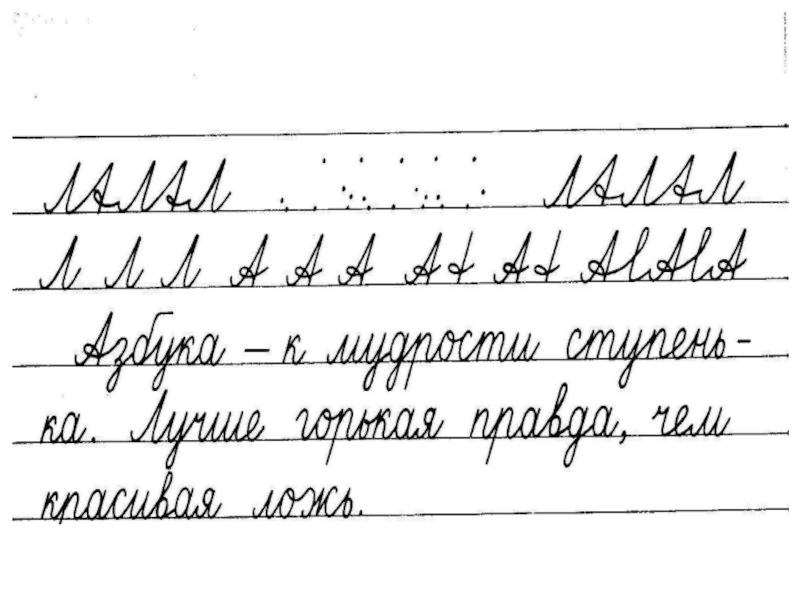 ЛАЛАЛ ЛАЛАЛ
Л Л Л А А А А А АА
Азбука – к мудрости ступень-
ка. Лучше горькая правда, чем
красивая ложь.